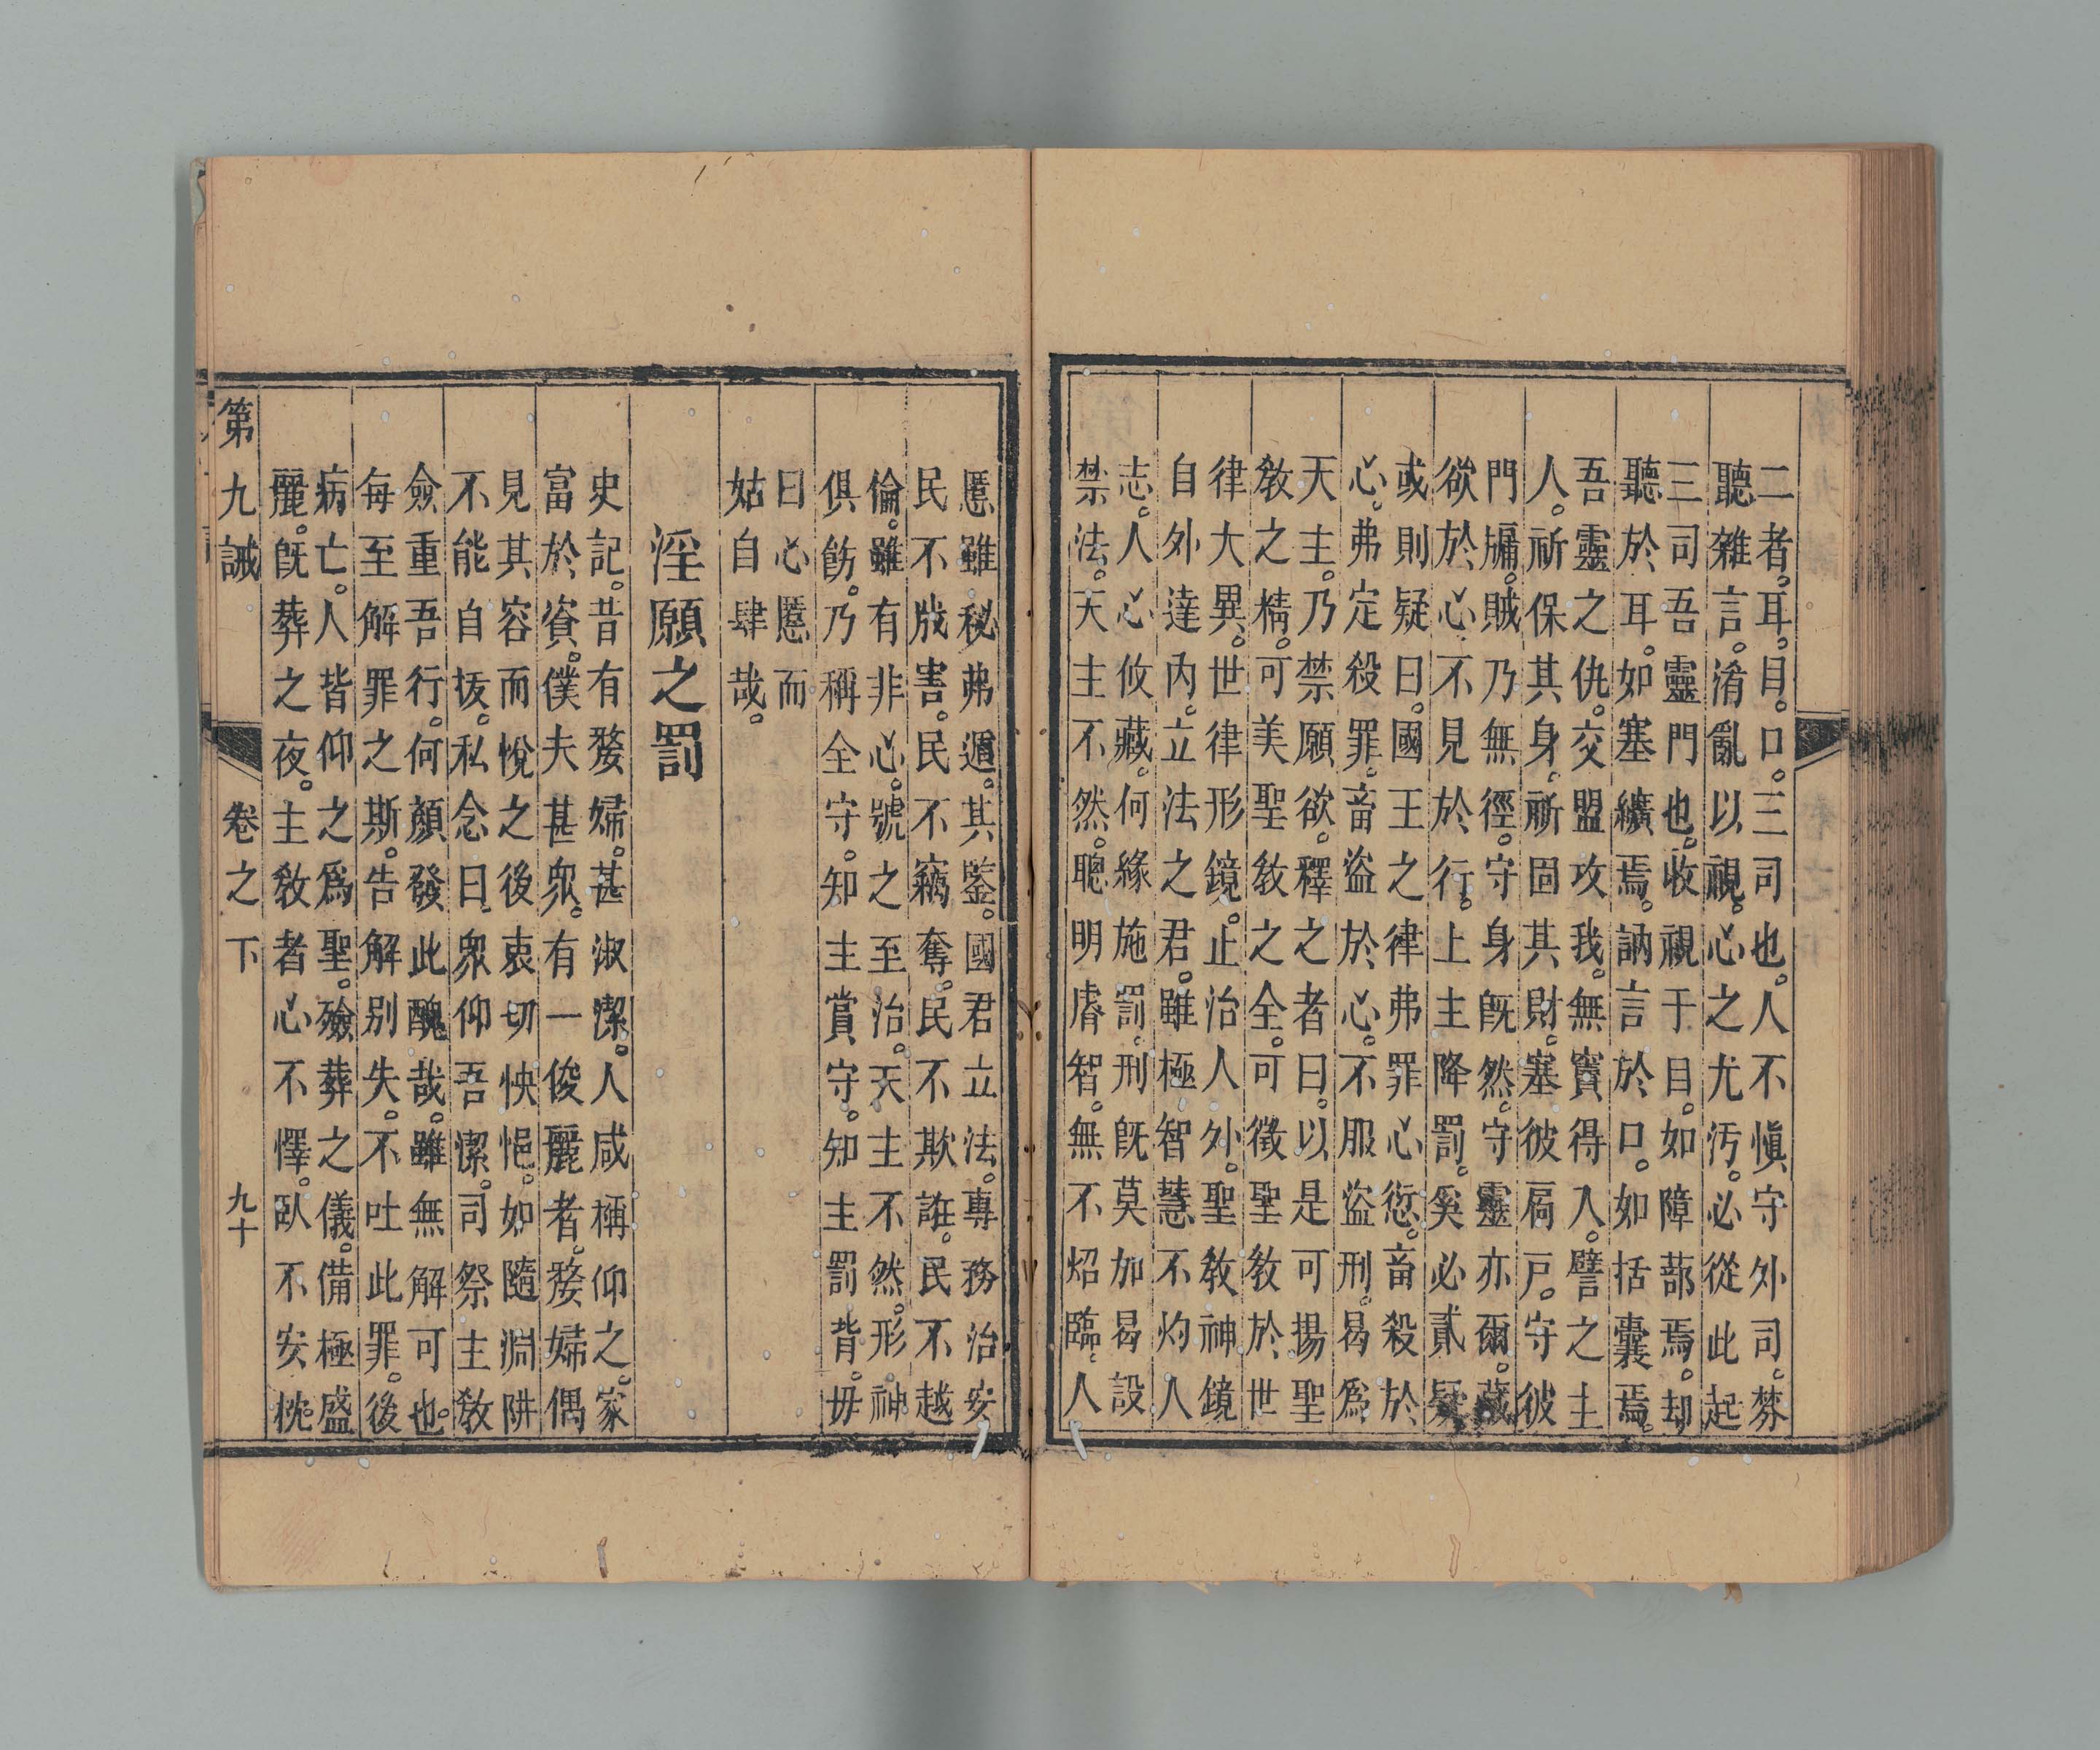 二者耳。目。口。三司也。人不慎守外司。棼
聽雜言。淆亂以視。心之尤污。必從此起
三司吾靈門也。收視于目。如障蔀焉。却
聽於耳。如塞纊焉。訥言於口。如括囊焉。
吾靈之仇。交盟攻我。無竇得入。譬之主
人。祈保其身。祈固其財。塞彼扃戸。守彼
門牖。賊乃無徑。守身旣然。守靈亦爾。藏
欲於心。不見於行。上主降罰。奚必貳疑
或則疑曰。國王之律。弗罪心愆。畜殺於
心。弗定殺罪。畜盜於心。不服盜刑。曷爲
天主。乃禁願欲。釋之者曰。以是可揚聖
敎之精。可美聖敎之全。可徵聖敎於世
律大異。世律形鏡。止治人外。聖敎神鏡
自外達內。立法之君。雖極智慧。不灼人
志。人心攸藏。何緣施罰。刑旣莫加。曷設
禁法。天主不然。聰明睿智。無不炤臨。人
慝雖秘。弗遁其鑒。國君立法。專務治安
民不戕害。民不竊奪。民不欺誑。民不越
倫。雖有非心。號之至治。天主不然。形神
俱飭。乃稱全守。知主賞守。知主罰背。毋
曰心慝而
姑自肆哉。
淫願之罰
史記。昔有嫠婦。甚淑潔。人咸稱仰之。家
富於資。僕夫甚眾。有一俊麗者。嫠婦偶
見其容而悅之後。衷切怏悒。如隨淵阱
不能自拔。私念曰。眾仰吾潔。司祭主敎
僉重吾行。何顏發此醜哉。雖無解可也。
每至解罪之斯。告解別失。不吐此罪。後
病亡。人皆仰之爲聖。殮葬之儀。備極盛
麗。旣葬之夜。主敎者心不懌。臥不安枕。
第九誡 卷之下 九十